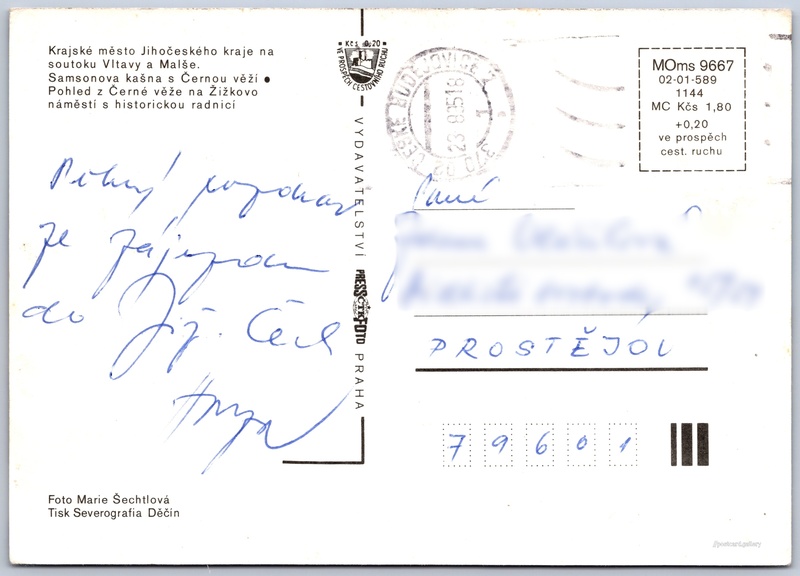 Krajské město Jihočeského kraje na
soutoku Vltavy a Malše.
Samsonova kašna s Černou věží ●
Pohled z Černé věže na Žižkovo
náměstí s historickou radnicí
Kčs 0,20
VE PROSPĚCH CESTOVNÍHO RUCHU
VYDAVATELSTVÍ
PRESSFOTO
ČTK
PRAHA
ČESKÉ BUDĚJOVICE 2
MOms 9667
02-01-589
1144
MC Kčs 1,80
+0,20
ve prospěch
cest. ruchu
Pěkný pozdrav
ze zájezdu
do Již. Čech
Paní
PROSTĚJOV
79601
Foto Marie Šechtlová
Tisk Severografia Děčín